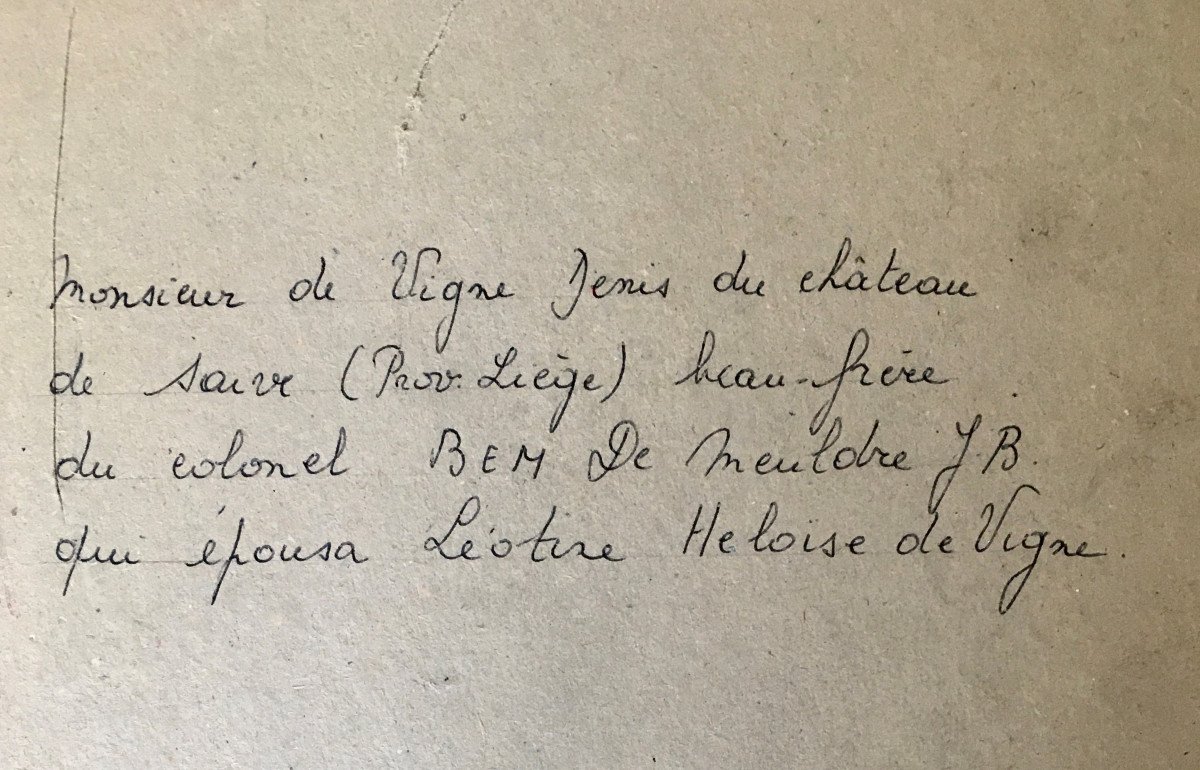 Monsieur de Vigne Denis du château
de Saive (Prov. Liège) beau-frère
du colonel BEM De Meuldre J.B.
qui épousa Léotine Heloïse de Vigne.